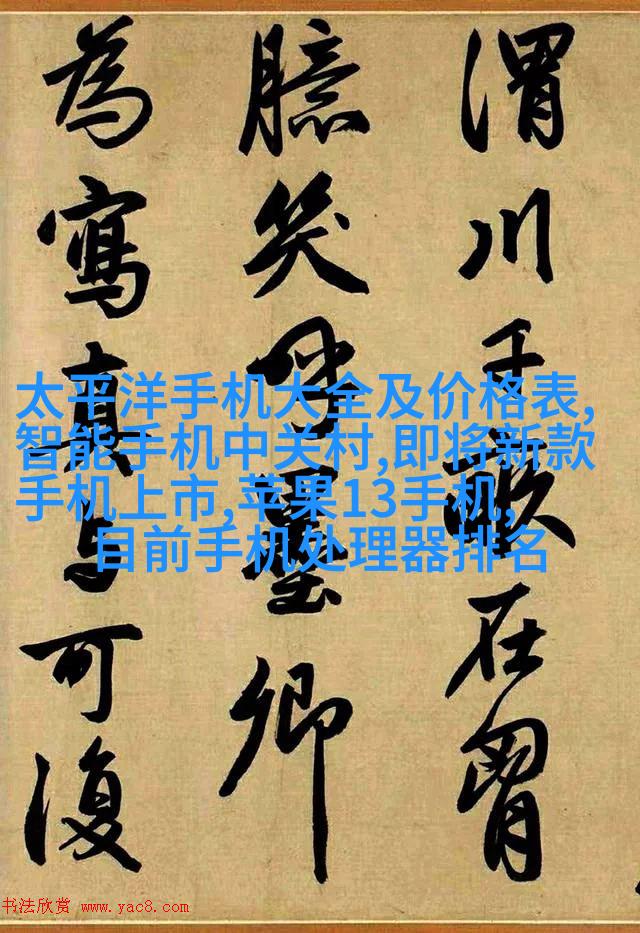 渭川千畝在胷
臆笑呼墨卿
為寫真与可復
太平洋手机大全及价格表,
智能手机中关村,即将新款
手机上市,苹果13手机,
目前手机处理器排名
书法欣赏 www.yac8.com